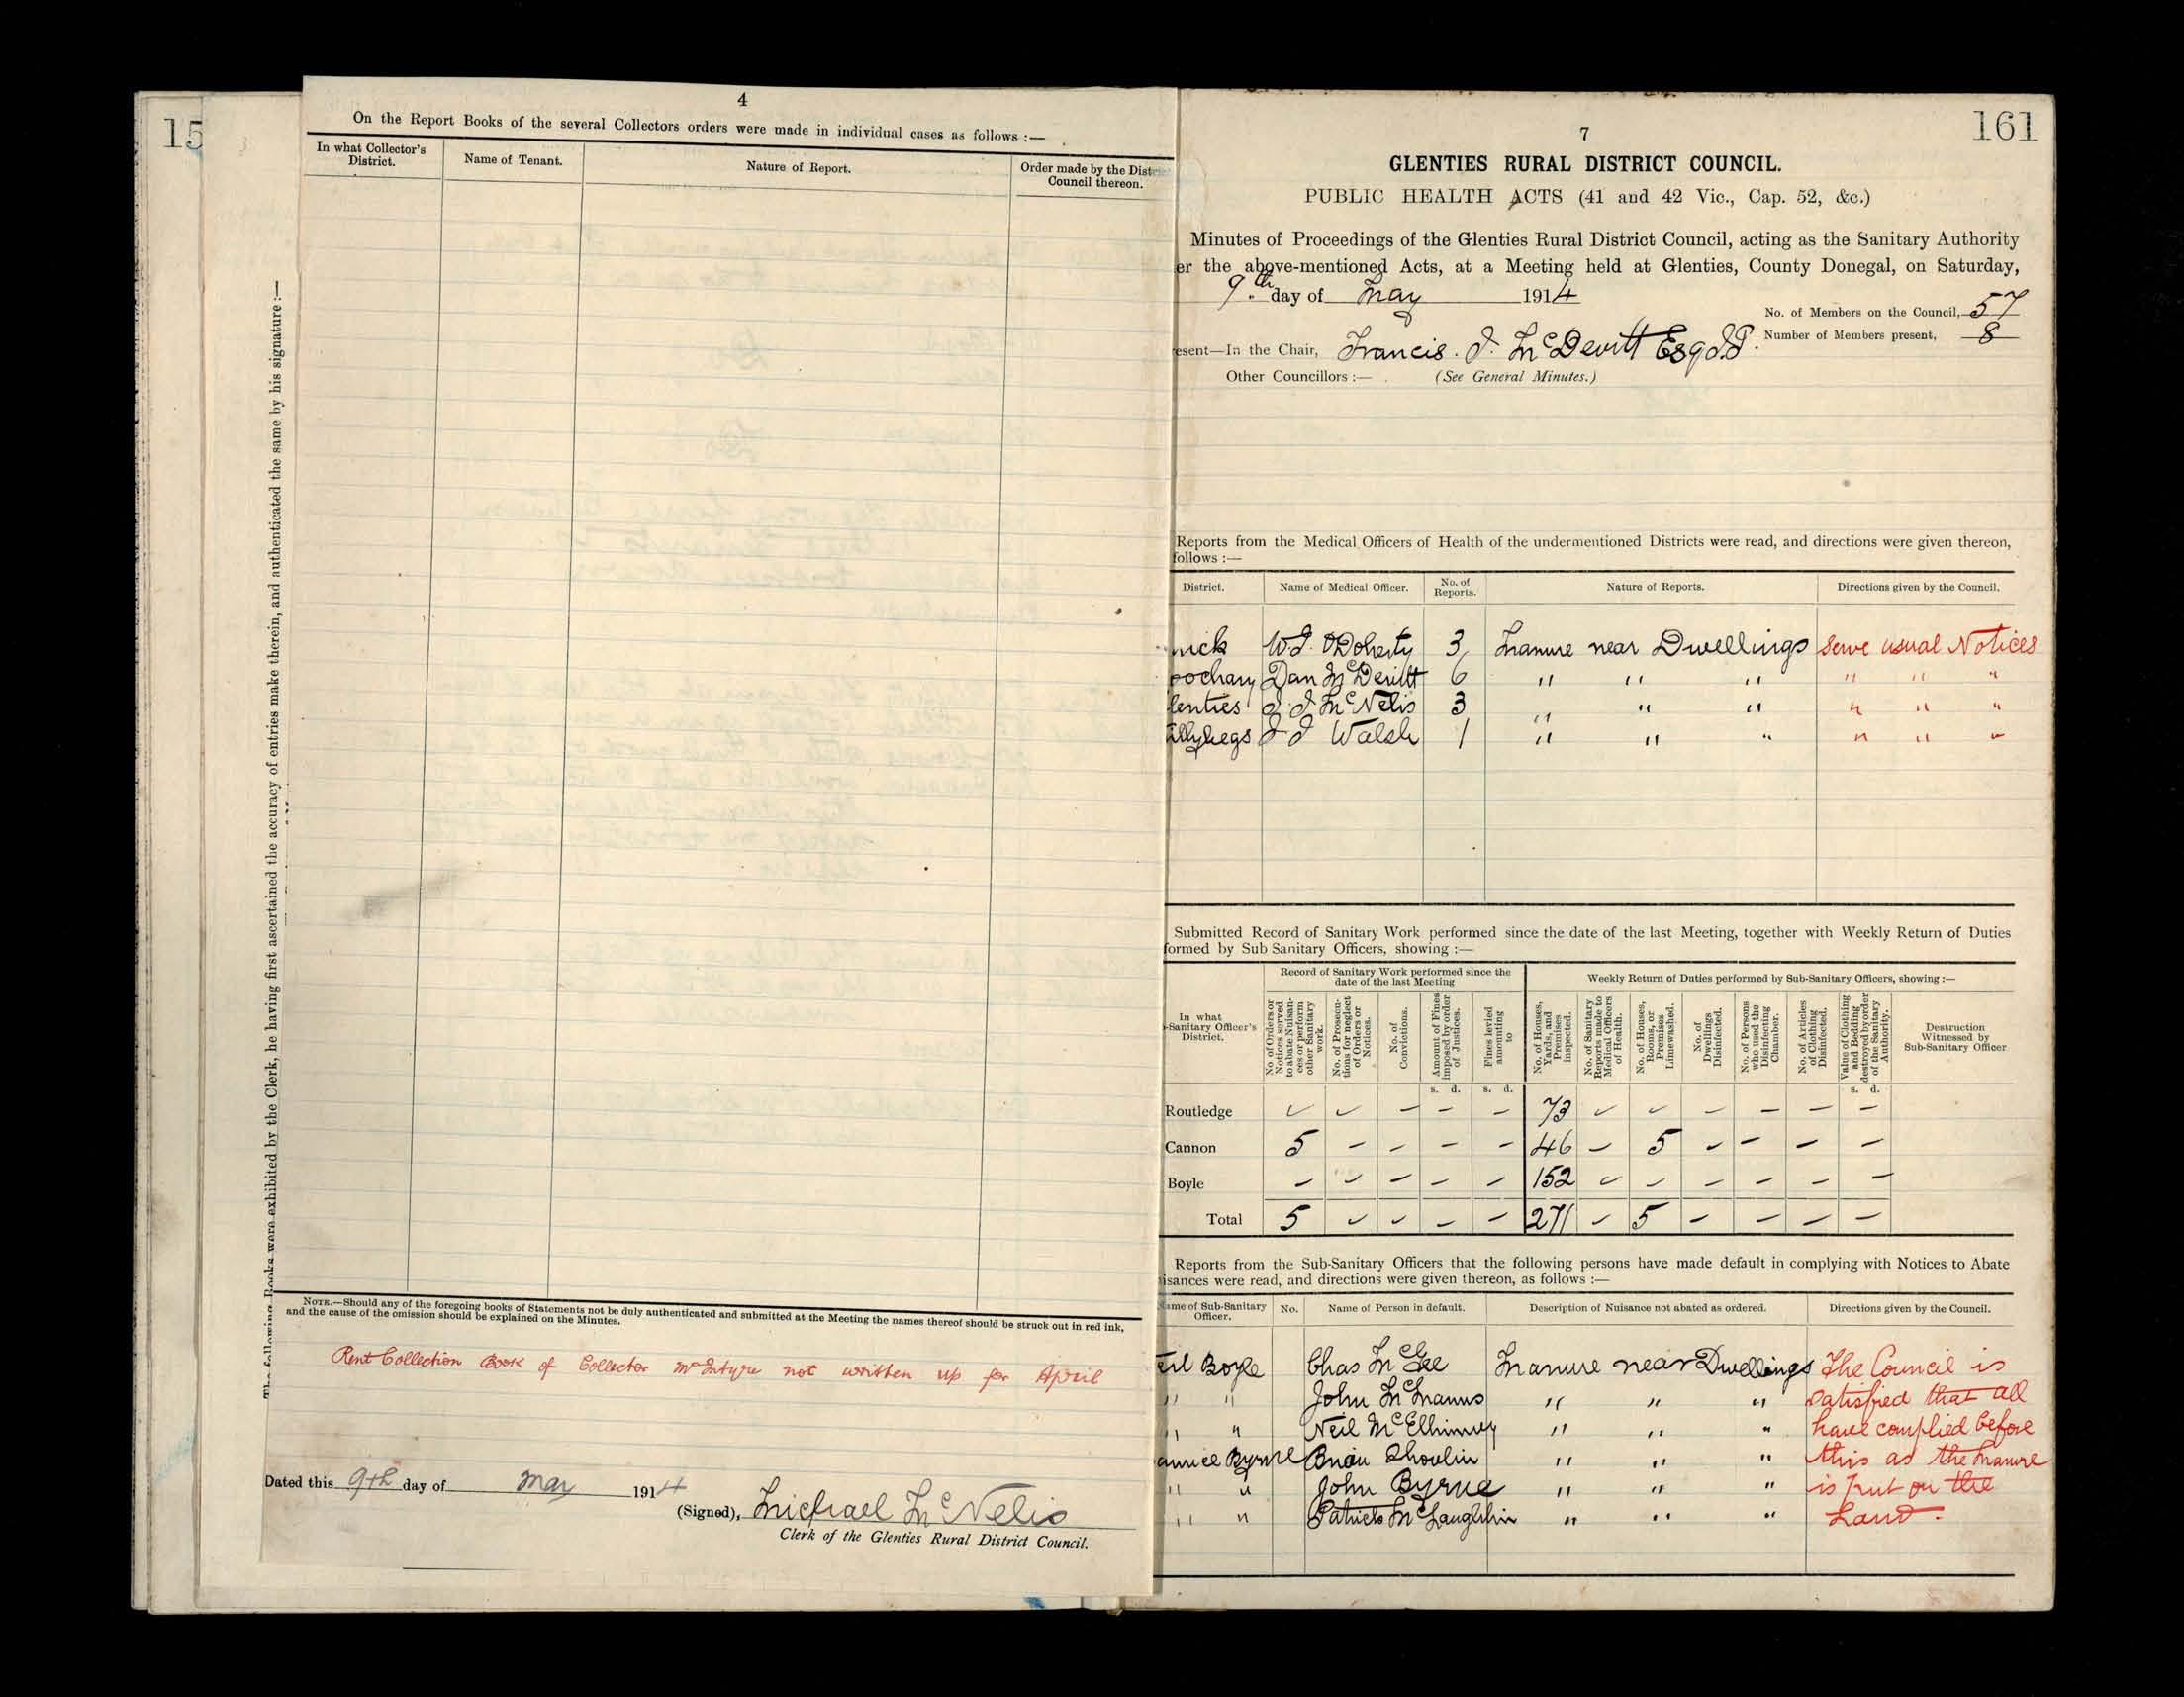 15
4
On the Report Books of the several Collectors orders were made in individual cases as follows :—
In what Collector's District.
Name of Tenant.
Nature of Report.
Order made by the Dist
Council thereon.
Books were exhibited by the Clerk, he having first ascertained the accuracy of entries make therein, and authenticated the same by his signature :—
NOTE.—Should any of the foregoing books of Statements not be duly authenticated and submitted at the Meeting the names thereof should be struck out in red ink,
and the cause of the omission should be explained on the Minutes.
Rent Collection Book of Collector McIntyre not written up for April
Dated this 9th day of May 1914
(Signed), Michael McNelis
Clerk of the Glenties Rural District Council.
161
7
GLENTIES RURAL DISTRICT COUNCIL.
PUBLIC HEALTH ACTS (41 and 42 Vic., Cap. 52, &c.)
Minutes of Proceedings of the Glenties Rural District Council, acting as the Sanitary Authority
er the above-mentioned Acts, at a Meeting held at Glenties, County Donegal, on Saturday,
9th day of May 1914
No. of Members on the Council, 57
Number of Members present, 8
esent—In the Chair, Francis. J. McDevitt Esq J.P.
Other Councillors :— (See General Minutes.)
Reports from the Medical Officers of Health of the undermentioned Districts were read, and directions were given thereon,
follows :—
District. Name of Medical Officer. No. of Reports. Nature of Reports. Directions given by the Council.
nick W.J. O'Doherty 3 Manure near Dwellings Serve usual Notices
oochary Dan McDevitt 6 " " " " " "
lenties J. J McNelis 3 " " " " " "
illybegs J J Walsh 1 " " " " " "
Submitted Record of Sanitary Work performed since the date of the last Meeting, together with Weekly Return of Duties
formed by Sub Sanitary Officers, showing :—
Record of Sanitary Work performed since the date of the last Meeting
Weekly Return of Duties performed by Sub-Sanitary Officers, showing :—
In what
-Sanitary Officer's
District.
No. of Orders or Notices served to abate Nuisances or perform other Sanitary work.
No. of Prosecutions for neglect of Orders or Notices.
No. of Convictions.
Amount of Fines imposed by order of Justices.
Fines levied amounting to
No. of Houses, Yards, and Premises inspected.
No. of Sanitary Reports made to Medical Officers of Health.
No. of Houses, Rooms, or Premises Limewashed.
No. of Dwellings Disinfected.
No. of Persons who used the Disinfecting Chamber.
No. of Articles of Clothing Disinfected.
Value of Clothing and Bedding destroyed by order of the Sanitary Authority.
Destruction Witnessed by Sub-Sanitary Officer
s. d. s. d. s. d.
Routledge – – – – – 73 – – – – – –
Cannon 5 – – – – 46 – 5 – – – –
Boyle – – – – – 152 – – – – – –
Total 5 – – – – 271 – 5 – – – –
Reports from the Sub-Sanitary Officers that the following persons have made default in complying with Notices to Abate
isances were read, and directions were given thereon, as follows :—
ame of Sub-Sanitary Officer. No. Name of Person in default. Description of Nuisance not abated as ordered. Directions given by the Council.
eil Boyle Chas McGee Manure near Dwellings The Council is
" " John McManus " " " satisfied that all
" " Neil McElhinney " " " have complied before
Byrne Brian " " " this as the Manure
" " John Byrne " " " is put on the
" " Patrick McLaughlin " " " Land.